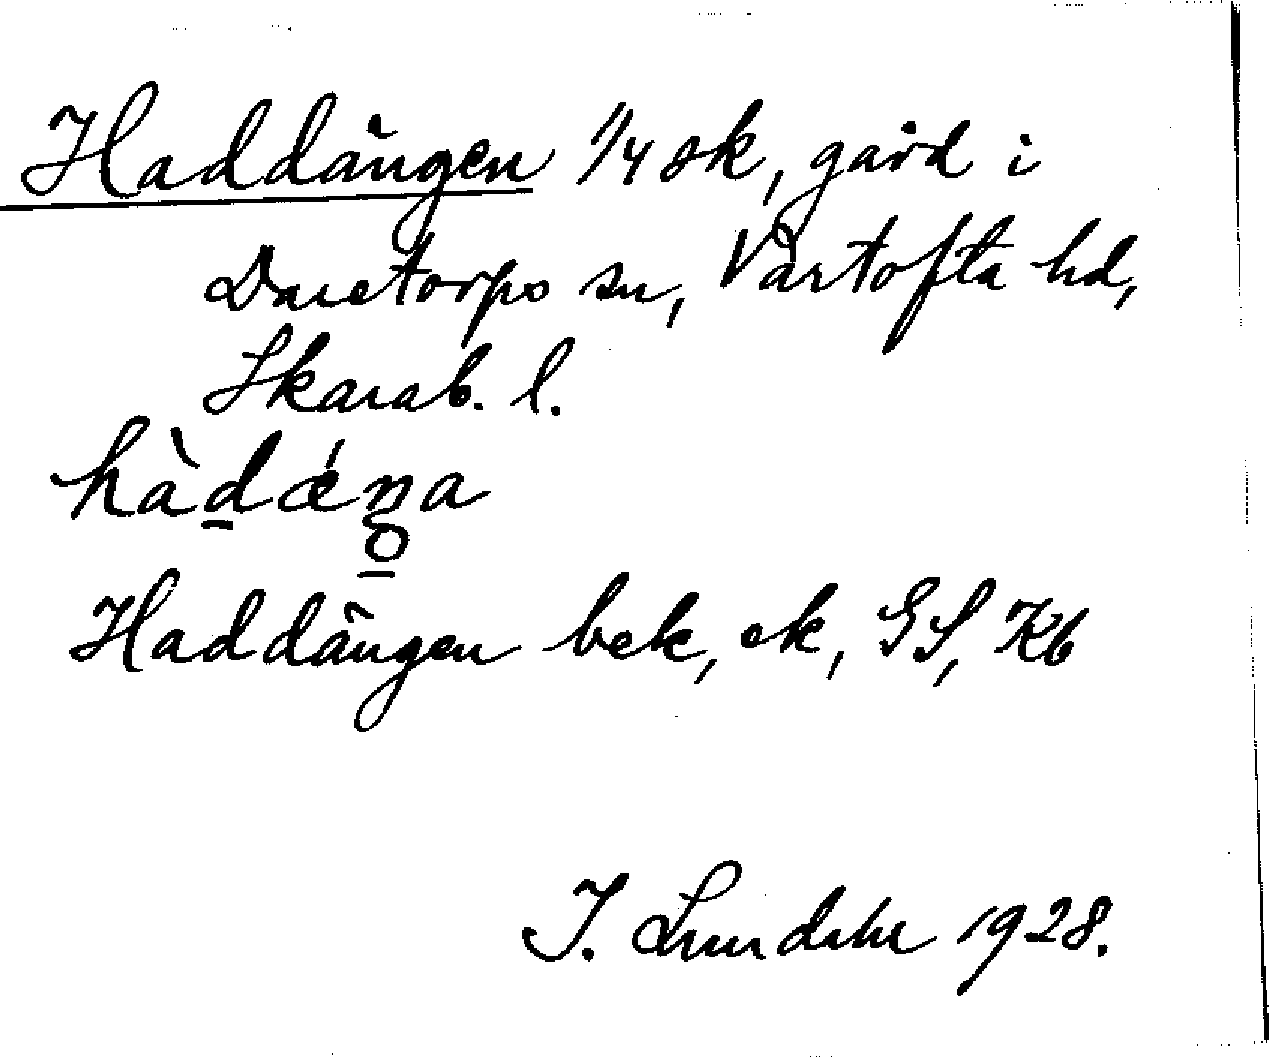 Haddängen 1/4 sk, gård i
Daretorps sn, Vartofta hd,
Skarab. l.
hàdǽŋa
Haddängen bek, ek, GS, Kb
I. Lundahl 1928.